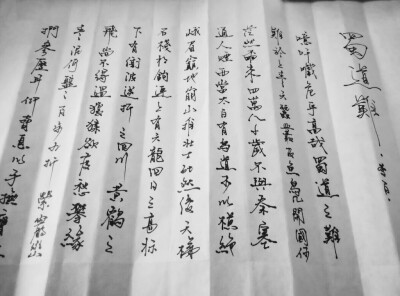 蜀道難 李白
噫吁嚱危乎高哉蜀道之難
難於上青天蠶叢及魚鳧開國何
茫然爾來四萬八千歲不與秦塞
通人煙西當太白有鳥道可以橫絕
峨眉巔地崩山摧壯士死然後天梯
石棧相鉤連上有六龍回日之高標
下有衝波逆折之回川黃鶴之
飛尚不得過猿猱欲度愁攀緣
青泥何盤盤百步九折縈巖巒
捫參歷井仰脅息以手撫膺